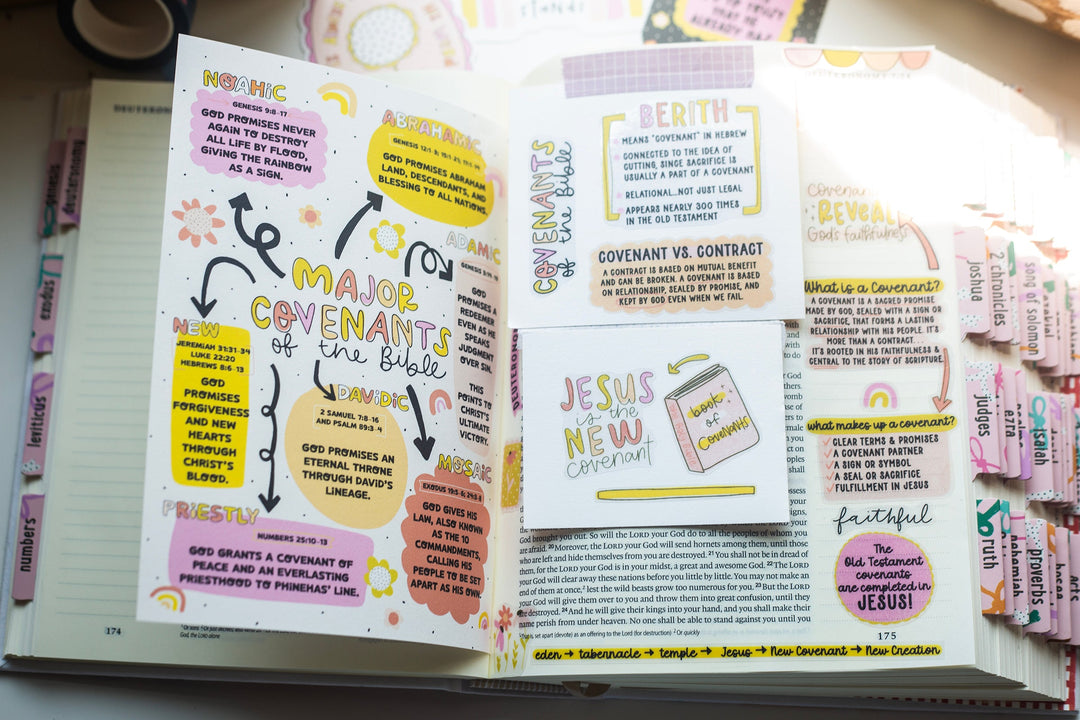 stands
ALREADY
DEUTERONOMY
NOAHIC
GENESIS 9:8-17
GOD PROMISES NEVER
AGAIN TO DESTROY
ALL LIFE BY FLOOD,
GIVING THE RAINBOW
AS A SIGN.
ABRAHAMIC
GENESIS 12:1-3; 15:1-21; 17:1-14
GOD PROMISES ABRAHAM
LAND, DESCENDANTS, AND
BLESSING TO ALL NATIONS.
ADAMIC
GOD
PROMISES A
REDEEMER
EVEN AS HE
SPEAKS
JUDGMENT
OVER SIN.
THIS
POINTS TO
CHRIST'S
ULTIMATE
VICTORY.
MAJOR
COVENANTS
of the Bible
NEW
JEREMIAH 31:31-34
LUKE 22:20
HEBREWS 8:6-13
GOD
PROMISES
FORGIVENESS
AND NEW
HEARTS
THROUGH
CHRIST'S
BLOOD.
DAVIDIC
2 SAMUEL 7:8-16
AND PSALM 89:3-4
GOD PROMISES AN
ETERNAL THRONE
THROUGH DAVID'S
LINEAGE.
MOSAIC
EXODUS 19:5-6; 24:3-8
GOD GIVES HIS
LAW, ALSO KNOWN
AS THE 10
COMMANDMENTS,
CALLING HIS
PEOPLE TO BE SET
APART AS HIS OWN.
PRIESTLY
NUMBERS 25:10-13
GOD GRANTS A COVENANT OF
PEACE AND AN EVERLASTING
PRIESTHOOD TO PHINEHAS' LINE.
174
God, the LORD alone
genesis
deuteronomy
exodus
leviticus
numbers
COVENANTS
of the Bible
BERITH
MEANS "COVENANT" IN HEBREW
CONNECTED TO THE IDEA OF
CUTTING, SINCE SACRIFICE IS
USUALLY A PART OF A COVENANT
RELATIONAL...NOT JUST LEGAL
APPEARS NEARLY 300 TIMES
IN THE OLD TESTAMENT
COVENANT VS. CONTRACT
A CONTRACT IS BASED ON MUTUAL BENEFIT
AND CAN BE BROKEN. A COVENANT IS BASED
ON RELATIONSHIP, SEALED BY PROMISE, AND
KEPT BY GOD EVEN WHEN WE FAIL.
JESUS
is the
NEW
covenant
book
of
Covenants
God brought you out. So will the LORD your God do to all the peoples of whom you
are afraid. 20 Moreover, the LORD your God will send hornets among them, until those
who are left and hide themselves from you are destroyed. 21 You shall not be in dread of
them, for the LORD your God is in your midst, a great and awesome God. 22 The LORD
your God will clear away these nations before you little by little. You may not make an
end of them at once, lest the wild beasts grow too numerous for you. 23 But the LORD
your God will give them over to you and throw them into great confusion, until they
are destroyed. 24 And he will give their kings into your hand, and you shall make their
name perish from under heaven. No one shall be able to stand against you until you
set apart (devote) as an offering to the Lord (for destruction) 2 Or quickly
175
eden → tabernacle → temple → Jesus → New Covenant → New Creation
Covenant
REVEAL
God's faithfulness
What is a Covenant?
A COVENANT IS A SACRED PROMISE
MADE BY GOD, SEALED WITH A SIGN OR
SACRIFICE, THAT FORMS A LASTING
RELATIONSHIP WITH HIS PEOPLE. IT'S
MORE THAN A CONTRACT...
IT'S ROOTED IN HIS FAITHFULNESS &
CENTRAL TO THE STORY OF SCRIPTURE.
what makes up a covenant?
CLEAR TERMS & PROMISES
A COVENANT PARTNER
A SIGN OR SYMBOL
A SEAL OR SACRIFICE
FULFILLMENT IN JESUS
faithful
The
Old Testament
covenants
are completed in
JESUS!
joshua
2 chronicles
song of solomon
judges
ezra
isaiah
ruth
nehemiah
proverbs
hosea
acts